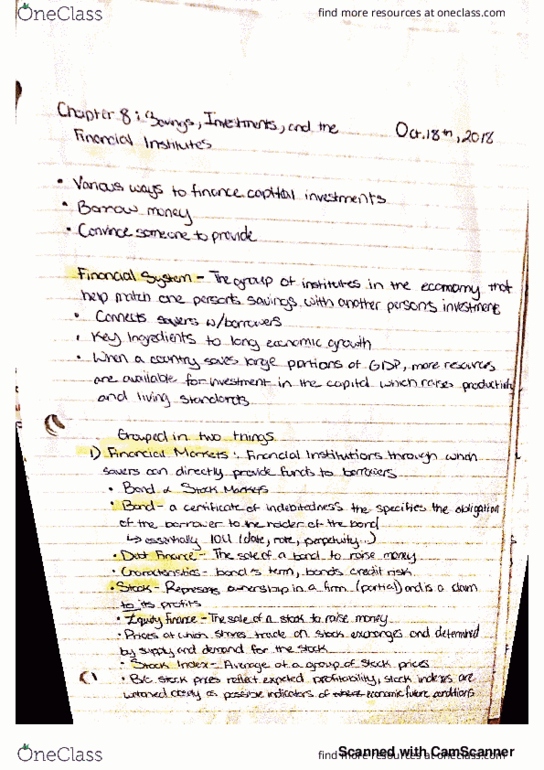 OneClass
find more resources at oneclass.com
Chapter 8: Savings, Investments, and the
Financial Institutes
Oct. 18th, 2018
• Various ways to finance capital investments
• Borrow money
• Convince someone to provide
Financial System - The group of institutes in the economy that
help match one person's savings with another person's investment
• Connects savers w/borrowers
• Key Ingredients to long economic growth
• When a country saves large portions of GDP, more resources
are available for investment in the capital which raises productivity
and living standards
Grouped in two things
1) Financial Markets: Financial Institutions through which
savers can directly provide funds to borrowers
• Bond & Stock Markets
• Bond - a certificate of indebtedness the specifies the obligation
of the borrower to the holder of the bond
↳ essentially IOU (date, rate, perpetuity...)
• Debt Finance - The sale of a bond to raise money
• Characteristics - bond's term, bonds credit risk
• Stock - Represents ownership in a firm (partial) and is a claim
to its profits
• Equity Finance - The sale of a stock to raise money
• Prices at which shares trade on stock exchanges and determined
by supply and demand for the stock
• Stock Index - Average of a group of stock prices
• B/c stock prices reflect expected profitability, stock indexes are
watched closely as possible indicators of economic future conditions
OneClass
find more resources at oneclass.com
Scanned with CamScanner